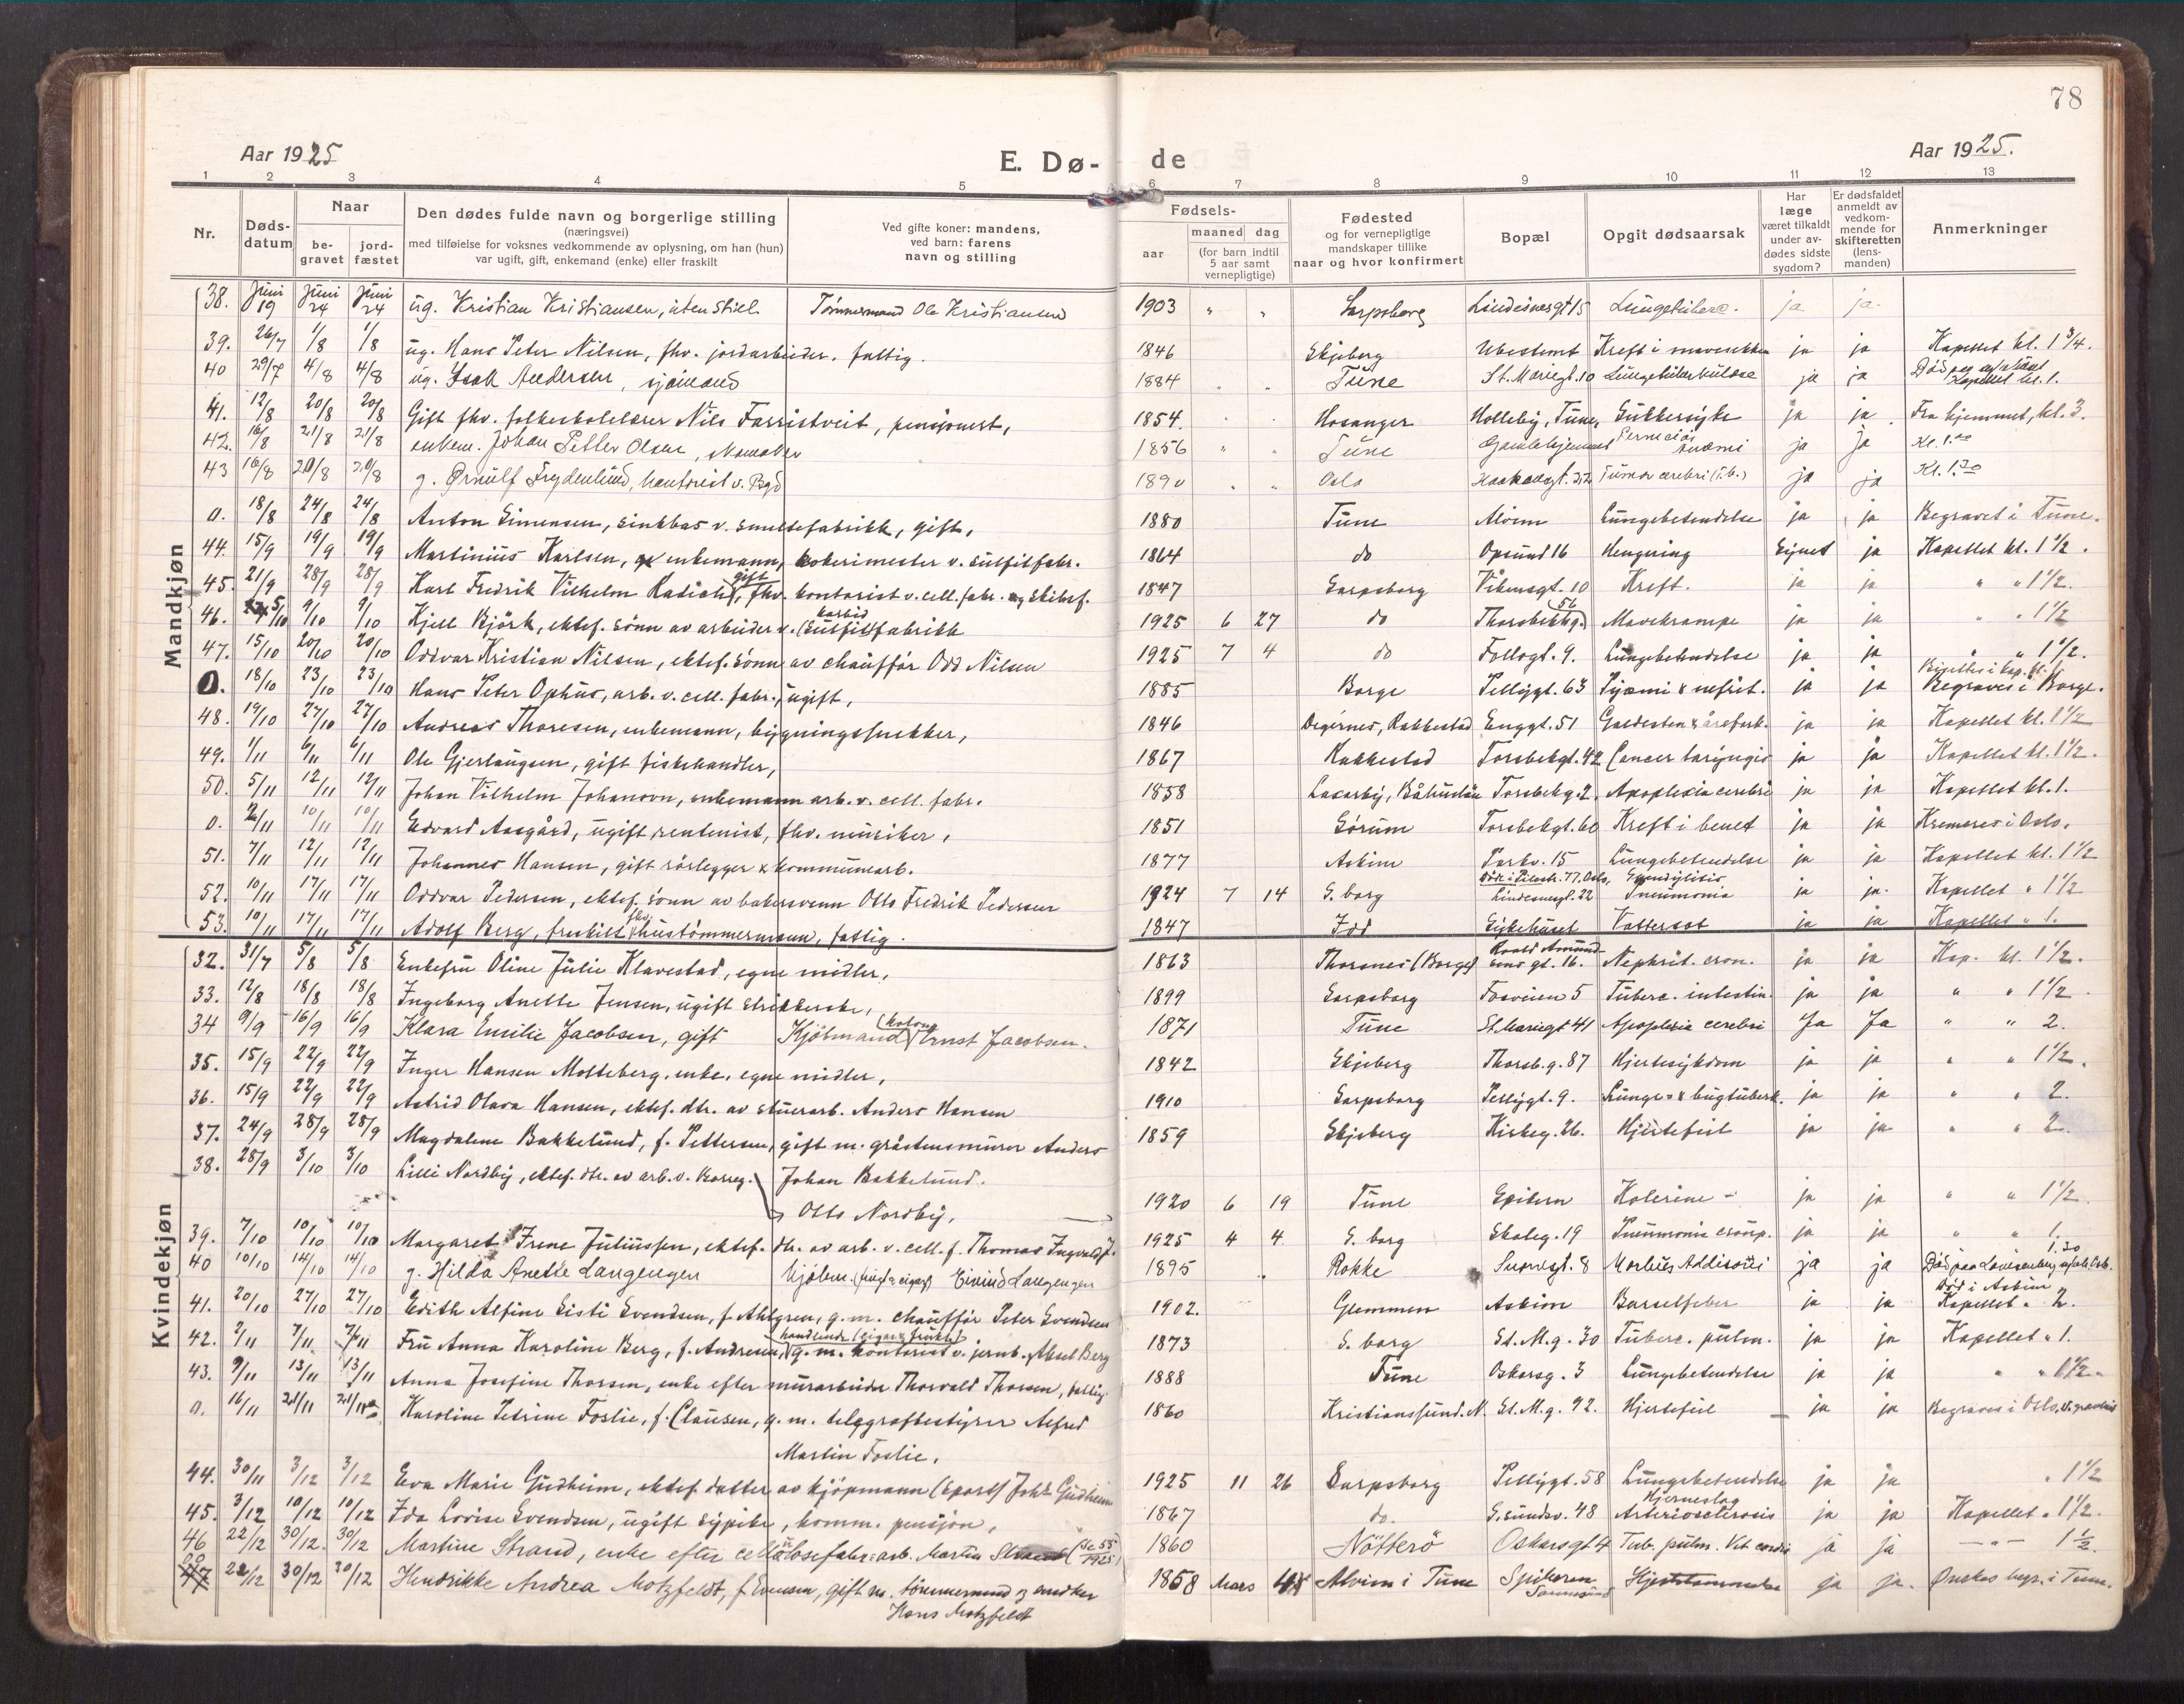 78
Aar 1925
E. Dø-
de
Aar 1925.
1 2 3 4 5 6 7 8 9 10 11 12 13
Nr.
Døds-
datum
Naar
be-
gravet
jord-
fæstet
Den dødes fulde navn og borgerlige stilling
(næringsvei)
med tilføielse for voksnes vedkommende av oplysning, om han (hun)
var ugift, gift, enkemand (enke) eller fraskilt
Ved gifte koner: mandens,
ved barn: farens
navn og stilling
Fødsels-
aar
maaned dag
(for barn indtil
5 aar samt
vernepligtige)
Fødested
og for vernepligtige
mandskaper tillike
naar og hvor konfirmert
Bopæl
Opgit dødsaarsak
Har
læge
været tilkaldt
under av-
dødes sidste
sygdom?
Er dødsfaldet
anmeldt av
vedkom-
mende for
skifteretten
(lens-
manden)
Anmerkninger
Mandkjøn
38. Juni 19 Juni 24 Juni 24 ug. Kristian Kristiansen, uten still. Tømmermand Ole Kristiansen 1903 " " Sarpsborg Lindesnesgt 15 Lungetuberc. ja ja.
39. 26/7 1/8 1/8 ug. Hans Peter Nilsen, fhv. jordarbeider. fattig. 1846 Skjeberg Ubestemt Kreft i mavesekken ja ja Kapellet kl. 1 3/4.
40 29/7 4/8 4/8 ug. Isak Andersen, sjømand 1884 " " Tune St. Mariegt. 10 Lungetuberkulose ja ja Kapellet kl. 1.
41. 12/8 20/8 20/8 Gift fhv. folkeskolelærer Nils Farristveit, pensjonist, 1854. Hosanger Holleby, Tune, Sukkersyke ja ja. Fra hjemmet, kl. 3.
42. 16/8 21/8 21/8 enkem. Johan Petter Olsen, skomaker 1856 " " Tune Gamlehjemmet Perniciøs anæmi ja ja Kl. 1.30
43 16/8 20/8 20/8 g. Ørnulf Frydenlund, kontorist v. Bgd 1890 " " Oslo Haakonsgt. 32 Tumor cerebri (T.b.) ja ja Kl. 1.30
0. 18/8 24/8 24/8 Anton Simensen, sinkbas v. smeltefabrikk, gift, 1880 Tune Alvim Lungebetendelse ja ja Begravet i Tune.
44. 15/9 19/9 19/9 Martinius Karlsen, enkemann, kokerimester v. sulfitfabr. 1864 do Opsund 16 Hengning Signet ja Kapellet kl. 1 1/2.
45. 21/9 28/9 28/9 Karl Fredrik Vilhelm Radich, gift, fhv. kontorist v. cell. fabr. og skibsf. 1847 Sarpsborg Vikensgt. 10 Kreft. ja ja " " 1 1/2.
46. 5/10 9/10 9/10 Kjell Björk, ektef. sønn av arbeider v. (sulfit) karbid fabrikk 1925 6 27 do Thorsbekkg. 56 Mavekrampe ja ja " " 1 1/2
47. 15/10 20/10 20/10 Oddvar Kristian Nilsen, ektef. sønn av chauffør Odd Nilsen 1925 7 4 do Follogt. 9. Lungebetendelse ja ja " " 1 1/2.
0. 18/10 23/10 23/10 Hans Peter Ophus, arb. v. cell. fabr., ugift, 1885 Borge Pellygt. 63 Pyæmi & nefrit. ja ja Begraves i Borge.
48. 19/10 27/10 27/10 Andreas Thoresen, enkemann, bygningssnekker, 1846 Degernes, Rakkestad Enggt. 51 Galdesten & årefork. ja ja Kapellet kl. 1 1/2
49. 1/11 6/11 6/11 Ole Gjerlaugsen, gift fiskehandler, 1867 Rakkestad Torsbekgt. 42 Cancer laryngis ja ja Kapellet kl. 1 1/2.
50. 5/11 12/11 12/11 Johan Vilhelm Johanson, enkemann arb. v. cell. fabr. 1858 Lacarby, Båhuslän Torsbekg. 2. Apoplexia cerebri ja ja Kapellet kl. 1.
0. 2/11 10/11 10/11 Edvard Aasgård, ugift rentenist, fhv. musiker, 1851 Sørum Torsbekgt. 60 Kreft i benet ja ja Kremeres i Oslo.
51. 7/11 12/11 12/11 Johannes Hansen, gift rørlegger & kommunearb. 1877 Askim Parkv. 15 Lungebetendelse ja ja Kapellet kl. 1 1/2
52. 10/11 17/11 17/11 Oddvar Pedersen, ektef. sønn av bakersvenn Otto Fredrik Pedersen 1924 7 14 S. borg Lindesnesgt. 22 Pneumonia ja ja. Kapellet " 1 1/2
53. 10/11 17/11 17/11 Adolf Berg, fraskilt fhv. hustømmermann, fattig. 1847 Idd Sykehuset Vattersot ja ja Kapellet " 1.
Kvindekjøn
32. 31/7 5/8 5/8 Enkefru Oline Julie Klavestad, egne midler, 1863 Thorsnes (Borge) Roald Amundsens gt. 16. Nephrit. cron. ja ja Kap. kl. 1 1/2.
33. 12/8 18/8 18/8 Ingeborg Anette Jensen, ugift strikkerske, 1899 Sarpsborg Fosveien 5 Tuberc. intestin. ja ja " " 1 1/2.
34 9/9 16/9 16/9 Klara Emilie Jacobsen, gift Kjöbmand (kolon) Ernst Jacobsen. 1871 Tune St. Mariegt 41 Apoplexia cerebri Ja Ja " " 2.
35. 15/9 22/9 22/9 Inger Hansen Molteberg, enke, egne midler, 1842 Skjeberg Thorsb.g. 87 Hjertesykdom ja ja " " 1 1/2.
36. 15/9 22/9 22/9 Astrid Olava Hansen, ektef. dtr. av stuerarb. Anders Hansen 1910 Sarpsborg Pellygt. 9. Lunge= & bugtuberk. ja ja " " 2.
37. 24/9 28/9 28/9 Magdalene Bakkelund, f. Pettersen, gift m. gråstensmurer Anders 1859 Skjeberg Kirkeg. 26. Hjertefeil ja ja " " 2
38. 28/9 3/10 3/10 Lilli Nordby, ektef. dtr. av arb. v. Borreg. Johan Bakkelund.
Otto Nordby, 1920 6 19 Tune Spikern Kolerine ja ja " " 1 1/2
39. 7/10 10/10 10/10 Margaret Irene Juliussen, ektef. dtr. av arb. v. cell. f. Thomas Ingvald J. 1925 4 4 S. borg Skoleg. 19 Pneumonia croup. ja ja " " 1
40 10/10 14/10 14/10 g. Hilda Anette Langengen Kjöbm. Eivind Langengen 1895 Rokke Sverresgt. 8 Morbus Addisonii ja ja 1.30
41. 20/10 27/10 27/10 Edith Alfine Sisti Svendsen, f. Ahlgren, g. m. chauffør Peter Svendsen 1902. Glemmen Askim Barselfeber ja ja Død i Askim Kapellet " 2.
42. 2/11 7/11 7/11 Fru Anna Karoline Berg, f. Andresen, g. m. handlende (cigar & frukt) kontorist v. jernb. Aksel Berg 1873 S. borg St. M. g. 30 Tuberc. pulm. ja ja Kapellet " 1.
43. 9/11 13/11 13/11 Anna Josefine Thorsen, enke efter murarbeider Thorvald Thorsen, fattig. 1888 Tune Oskarsg. 3 Lungebetendelse ja ja " " 1 1/2
0. 16/11 21/11 21/11 Karoline Petrine Foslie, f. Clausen, g. m. telegrafbestyrer Alfred 1860 Kristiansund. N. St. M. g. 92. Hjertefeil ja ja Begraves i Oslo,
Martin Foslie.
44. 30/11 3/12 3/12 Eva Marie Gudheim, ektef. datter av kjøpmann (sport) Johs. Gudheim 1925 11 26 Sarpsborg Pellygt. 58 Lungebetendelse ja ja " 1 1/2
45. 3/12 10/12 10/12 Ida Lovise Svendsen, ugift sypike, komm. pensjon, 1867 do. S. sundsv. 48 Hjerneslag Arteriosclerosis ja ja Kapellet " 1 1/2.
46 22/12 30/12 30/12 Martine Strand, enke efter cellulosefabr: arb. Martin Strand (Se 55 1925) 1860 Nötterö Oskarsgt 4 Tub. pulm. Vit. cordis ja ja — " — 1 1/2.
47 22/12 30/12 30/12 Hendrikke Andrea Motzfeldt, f. Evensen, gift m. tømmermand og snedker 1858 Mars Alvim i Tune Spikeren ja ja. Ønskes begr. i Tune.
Hans Motzfeldt